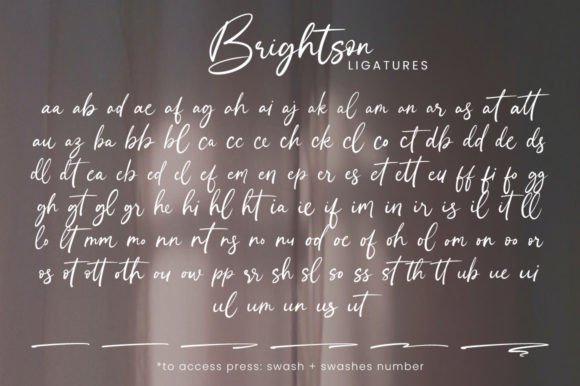 Brightson
LIGATURES
aa ab ad ae af ag ah ai aj ak al am an ar as at att
au az ba bb bl ca cc ce ch ck cl co ct db dd de ds
dl dt ea cb ed el ef em en ep er es et ett eu ff fi fo gg
gh gt gl gr he hi hl ht ia ie if im in ir is il it ll
lo lt mm mo nn nt ns no nu od oc of oh ol om on oo or
os ot ott oth ou ow pp rr sh sl so ss st th tt ub ue ui
ul um un us ut
*to access press: swash + swashes number